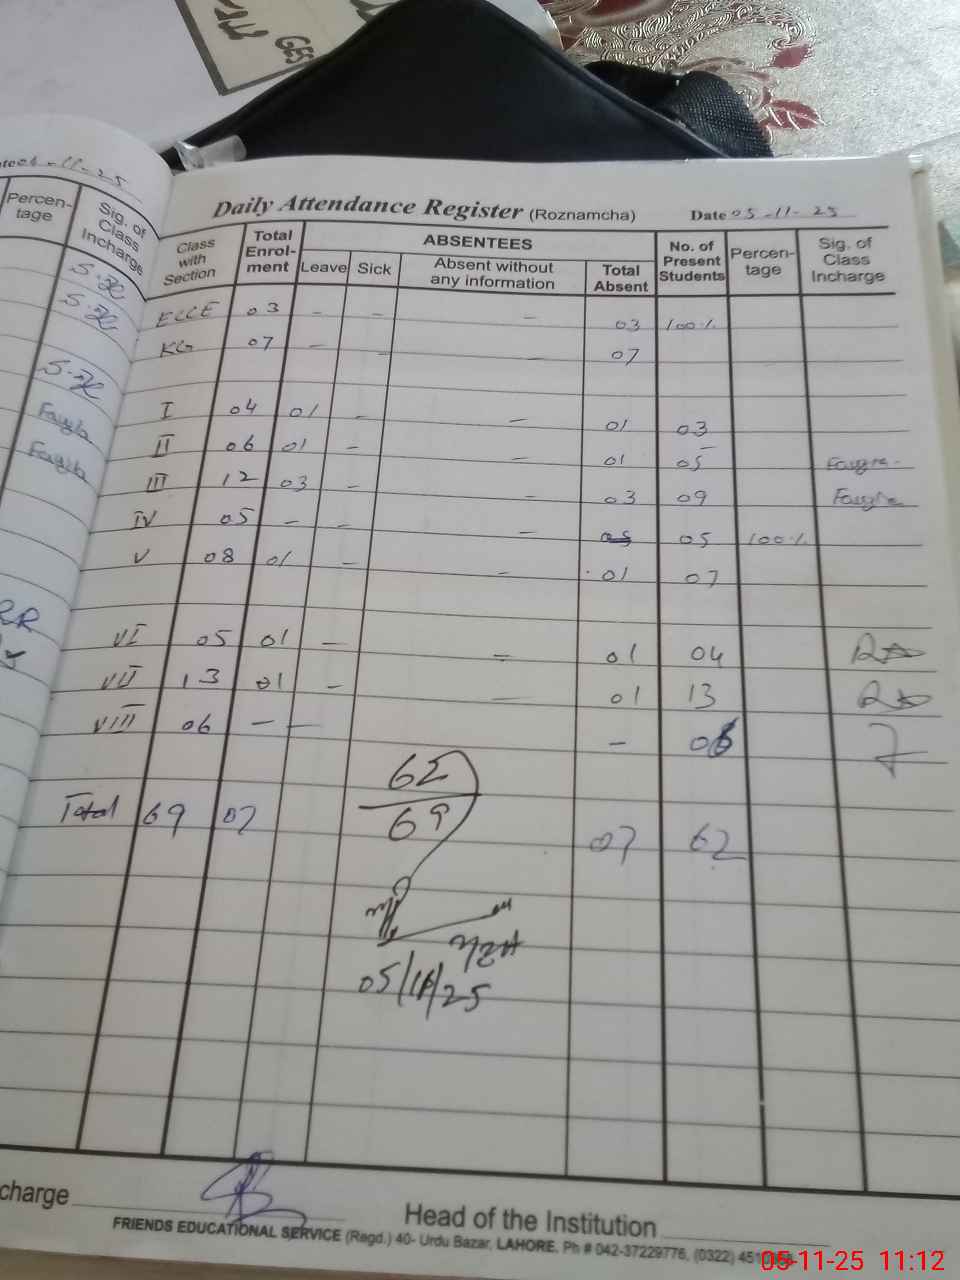 GES
te 04-11-25
Percen-
tage
Sig. of
Class
Incharge
Daily Attendance Register (Roznamcha) Date 05-11-25
Class with Section Total Enrol-ment ABSENTEES No. of Present Students Percen-tage Sig. of Class Incharge
Leave Sick Absent without any information Total Absent
ECCE 03 - - - 03 100%
KG 07 - - - 07
I 04 01 - - 01 03
II 06 01 - - 01 05
III 12 03 - - 03 09
IV 05 - - - 05 05 100%
V 08 01 - - 01 07
VI 05 01 - - 01 04
VII 13 01 - - 01 13
VIII 06 - - - 06
62
69
Total 69 07 07 62
05/11/25
charge
Head of the Institution
FRIENDS EDUCATIONAL SERVICE (Regd.) 40- Urdu Bazar, LAHORE. Ph # 042-37229776, (0322)
05-11-25 11:12